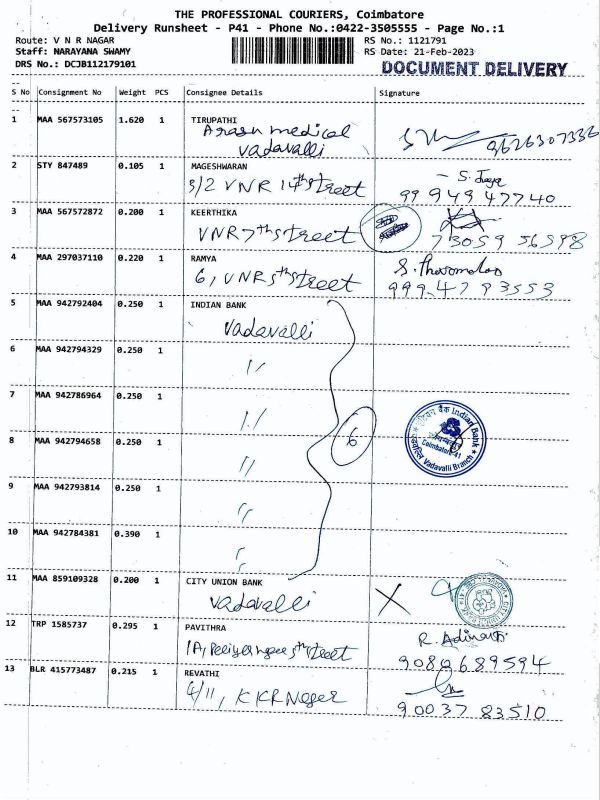 THE PROFESSIONAL COURIERS, Coimbatore
Delivery Runsheet - P41 - Phone No.:0422-3505555 - Page No.:1
Route: V N R NAGAR RS No.: 1121791
Staff: NARAYANA SWAMY RS Date: 21-Feb-2023
DRS No.: DCJB112179101 DOCUMENT DELIVERY
S No Consignment No Weight PCS Consignee Details Signature
1 MAA 567573105 1.620 1 TIRUPATHI
medical 9626307336
vadavalli
2 STY 847489 0.105 1 MAGESHWARAN
3/2 VNR 14th street 99949 47740
3 MAA 567572872 0.200 1 KEERTHIKA
VNR 7th street 73059 56598
4 MAA 297037110 0.220 1 RAMYA
6, VNR 5th street 99947 93553
5 MAA 942792404 0.250 1 INDIAN BANK
vadavalli
6 MAA 942794329 0.250 1
"
7 MAA 942786964 0.250 1
"
8 MAA 942794658 0.250 1
" 6
इंडियन बैंक Indian Bank
Coimbatore-41
Vadavalli Branch
9 MAA 942793814 0.250 1
"
10 MAA 942784381 0.390 1
"
11 MAA 859109328 0.200 1 CITY UNION BANK
vadavalli X
12 TRP 1585737 0.295 1 PAVITHRA
1A, 5th street 9080689594
13 BLR 415773487 0.215 1 REVATHI
4/11, KKR Nager 90037 83510